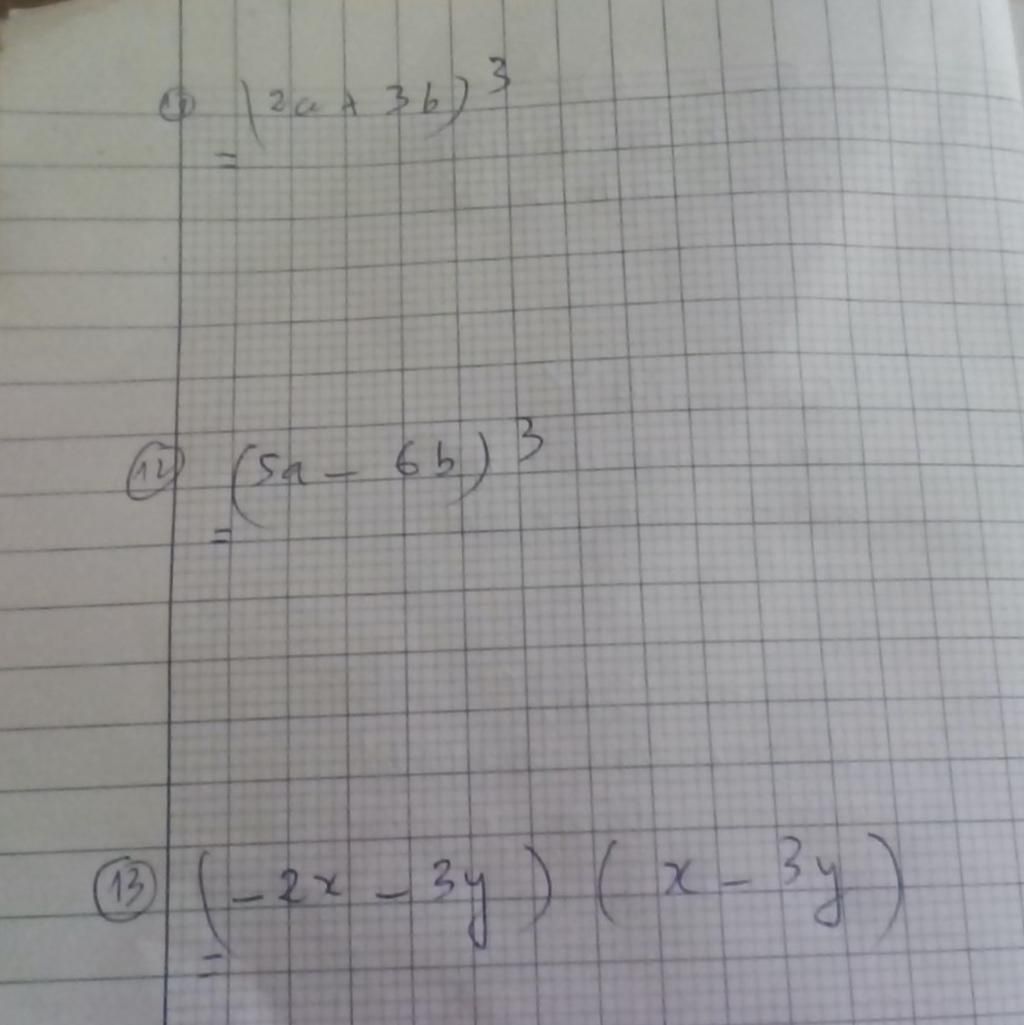 ⑪ (2a + 3b)³
=
⑫ (5a - 6b)³
=
⑬ (-2x - 3y) (x - 3y)
=